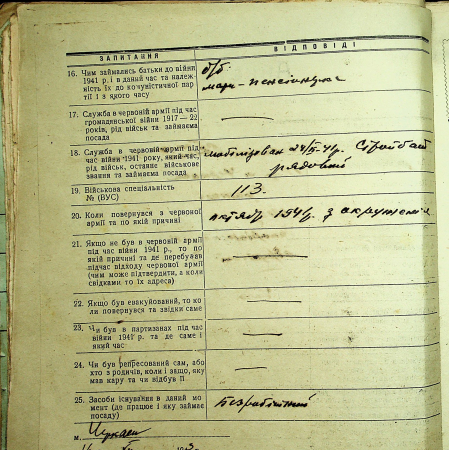 ЗАПИТАННЯ ВІДПОВІДІ
16. Чим займались батьки до війни
1941 р. і в даний час та належ-
ність їх до комуністичної пар
тії і з якого часу
б/б.
мати - пенсіонерка
17. Служба в червоній армії під час
громадянської війни 1917 — 22
років, рід військ та займаєма
посада
—
18. Служба в червоній армії під
час війни 1941 року, який час,
рід військ, останнє військове
звання та займаєма посада
мобілізован Стройбат
рядовий
19. Військова спеціальність
№ (ВУС)
113.
20. Коли повернувся з червоної
армії та по якій причині
октябр 1941р. з окруженія
21. Якщо не був в червоній армії
під час війни 1941 р., то по
якій причині та де перебував
підчас відходу червоної армії
(чим може підтвердити, а коли
свідками, то їх адреса)
—
22. Якщо був евакуйований, то ко
ли повернувся та звідки саме
—
23. Чи був в партизанах під час
війни 1941 р. та де саме і
який час
—
24. Чи був репресований сам, або
хто з родичів, коли і защо, яку
мав кару та чи відбув її
—
25. Засоби існування в даний мо
мент (де працює і яку займає
посаду)
Безробітний
м. Черкаси